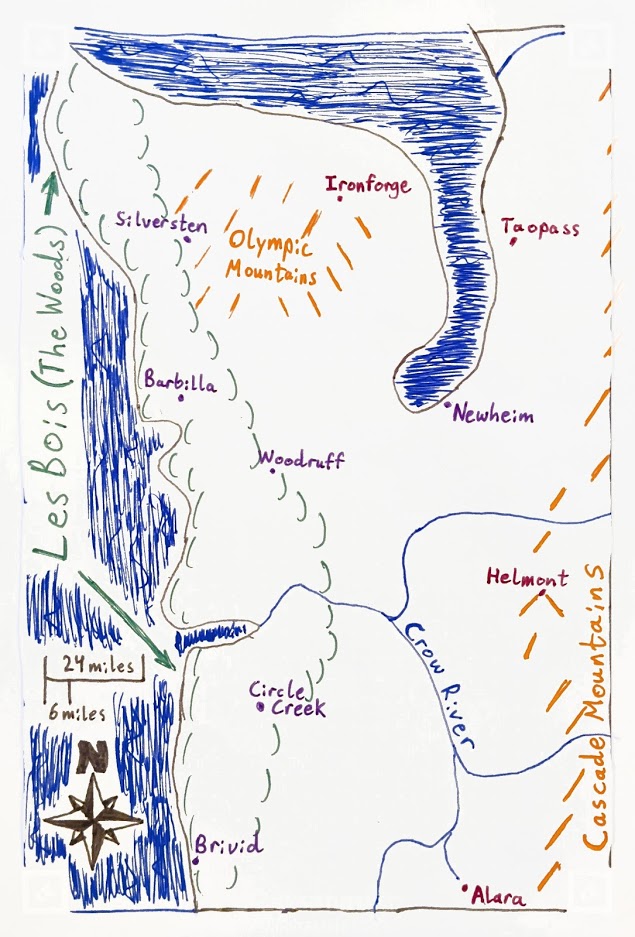 Ironforge
Silversten
Taopass
Olympic
Mountains
Les Bois (The Woods)
Barbilla
Newheim
Woodruff
Helmont
Crow River
24 miles
6 miles
Circle
Creek
Cascade Mountains
N
Brivid
Alara